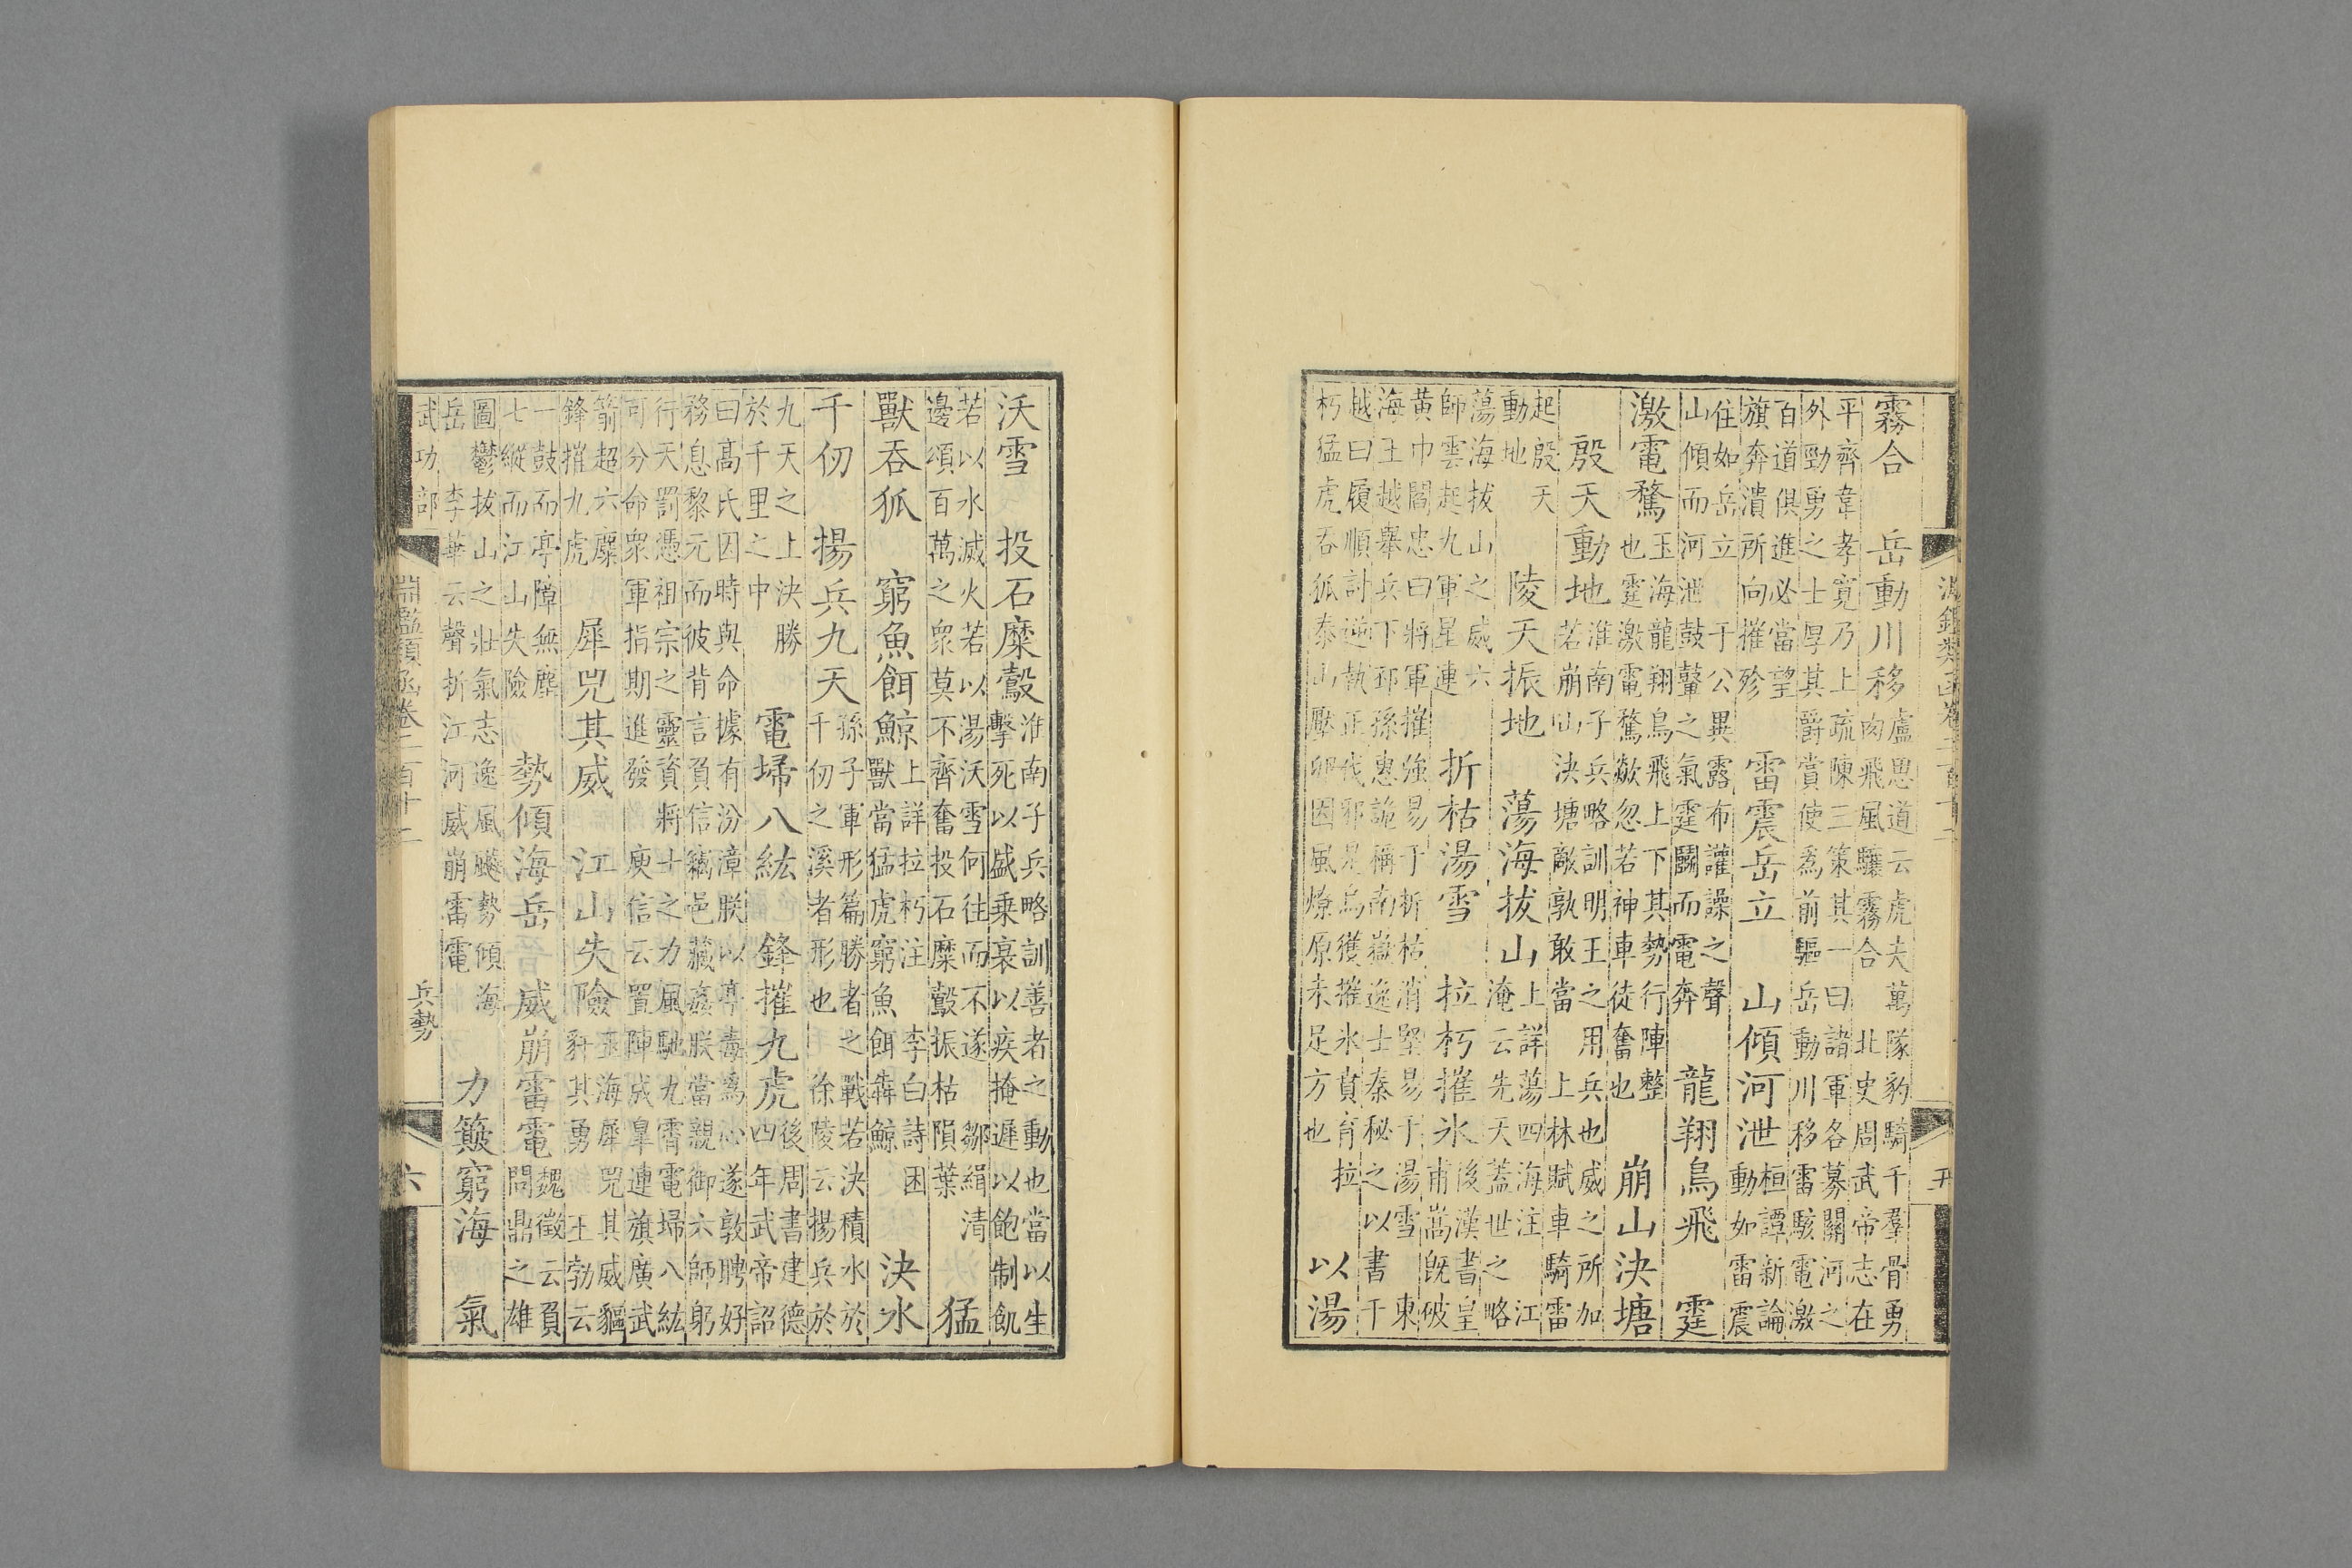 霧合　岳動川移
盧思道云虎夫萬隊豹騎千羣骨勇
肉飛風驤霧合　北史周武帝志在
平齊韋孝寬乃上疏陳三策其一曰諸軍各募關河之
外勁勇之士厚其爵賞使爲前驅岳動川移雷駭電激
百道俱進必當望
旗奔潰所向摧殄
雷震岳立　山傾河泄
桓譚新論
動如雷震
住如岳立　于公異露布讙譟之聲
山傾而河泄鼓鼙之氣霆鬭而電奔
龍翔鳥飛　霆
激電騖
玉海龍翔鳥飛上下其勢行陣整
也霆激電騖歘忽若神車徒奮也
崩山決塘
殷天動地
淮南子兵略訓明王之用兵也威之所加
若崩山決塘敵孰敢當　上林賦車騎雷
起殷天
動地
陵天振地　蕩海拔山
上詳蕩四海注　江
淹云先天蓋世之略
蕩海拔山之威六
師雲起九軍星連
折枯湯雪　拉朽摧氷
後漢書皇
甫嵩既破
黃巾閻忠曰將軍摧強易于折枯消堅易于湯雪　東
海王越舉兵下邳孫惠詭稱南嶽逸士秦秘之以書干
越曰履順計逆執正伐邪是烏獲摧氷賁育拉
朽猛虎吞狐泰山壓卵因風燎原未足方也
以湯
五
沃雪　投石糜鷇
淮南子兵略訓善者之動也當以生
擊死以盛乗衰以疾掩遲以飽制飢
若以水滅火若以湯沃雪何往而不遂　鄒緝清
邊頌百萬之衆莫不齊奮投石糜鷇振枯隕葉
猛
獸吞狐　窮魚餌鯨
上詳拉朽注　李白詩困
獸當猛虎窮魚餌犇鯨
決水
千仞　揚兵九天
孫子軍形篇勝者之戰若決積水於
千仞之溪者形也　徐陵云揚兵於
九天之上決勝
於千里之中
電埽八紘　鋒摧九虎
後周書建德
四年武帝詔
曰高氏因時與命據有汾漳朕以亭毒爲心遂敦聘好
務息黎元而彼背言負信竊邑藏姦朕當親御六師躬
行天罰憑祖宗之靈資將士之力風馳九霄電埽八紘
可分命衆軍指期進發　庾信云置陣成臯連旗廣武
箭超六麋
鋒摧九虎
犀兕其威　江山失險
玉海犀兕其威貙
豻其勇　王勃云
一鼓而亭障無塵
七縱而江山失險
勢傾海岳　威崩雷電
魏徵云負
問鼎之雄
圖鬱拔山之壯氣志逸風飈勢傾海
岳　李華云聲折江河威崩雷電
力簸窮海　氣
武功部
淵鑑類函卷二百十二
兵勢
六